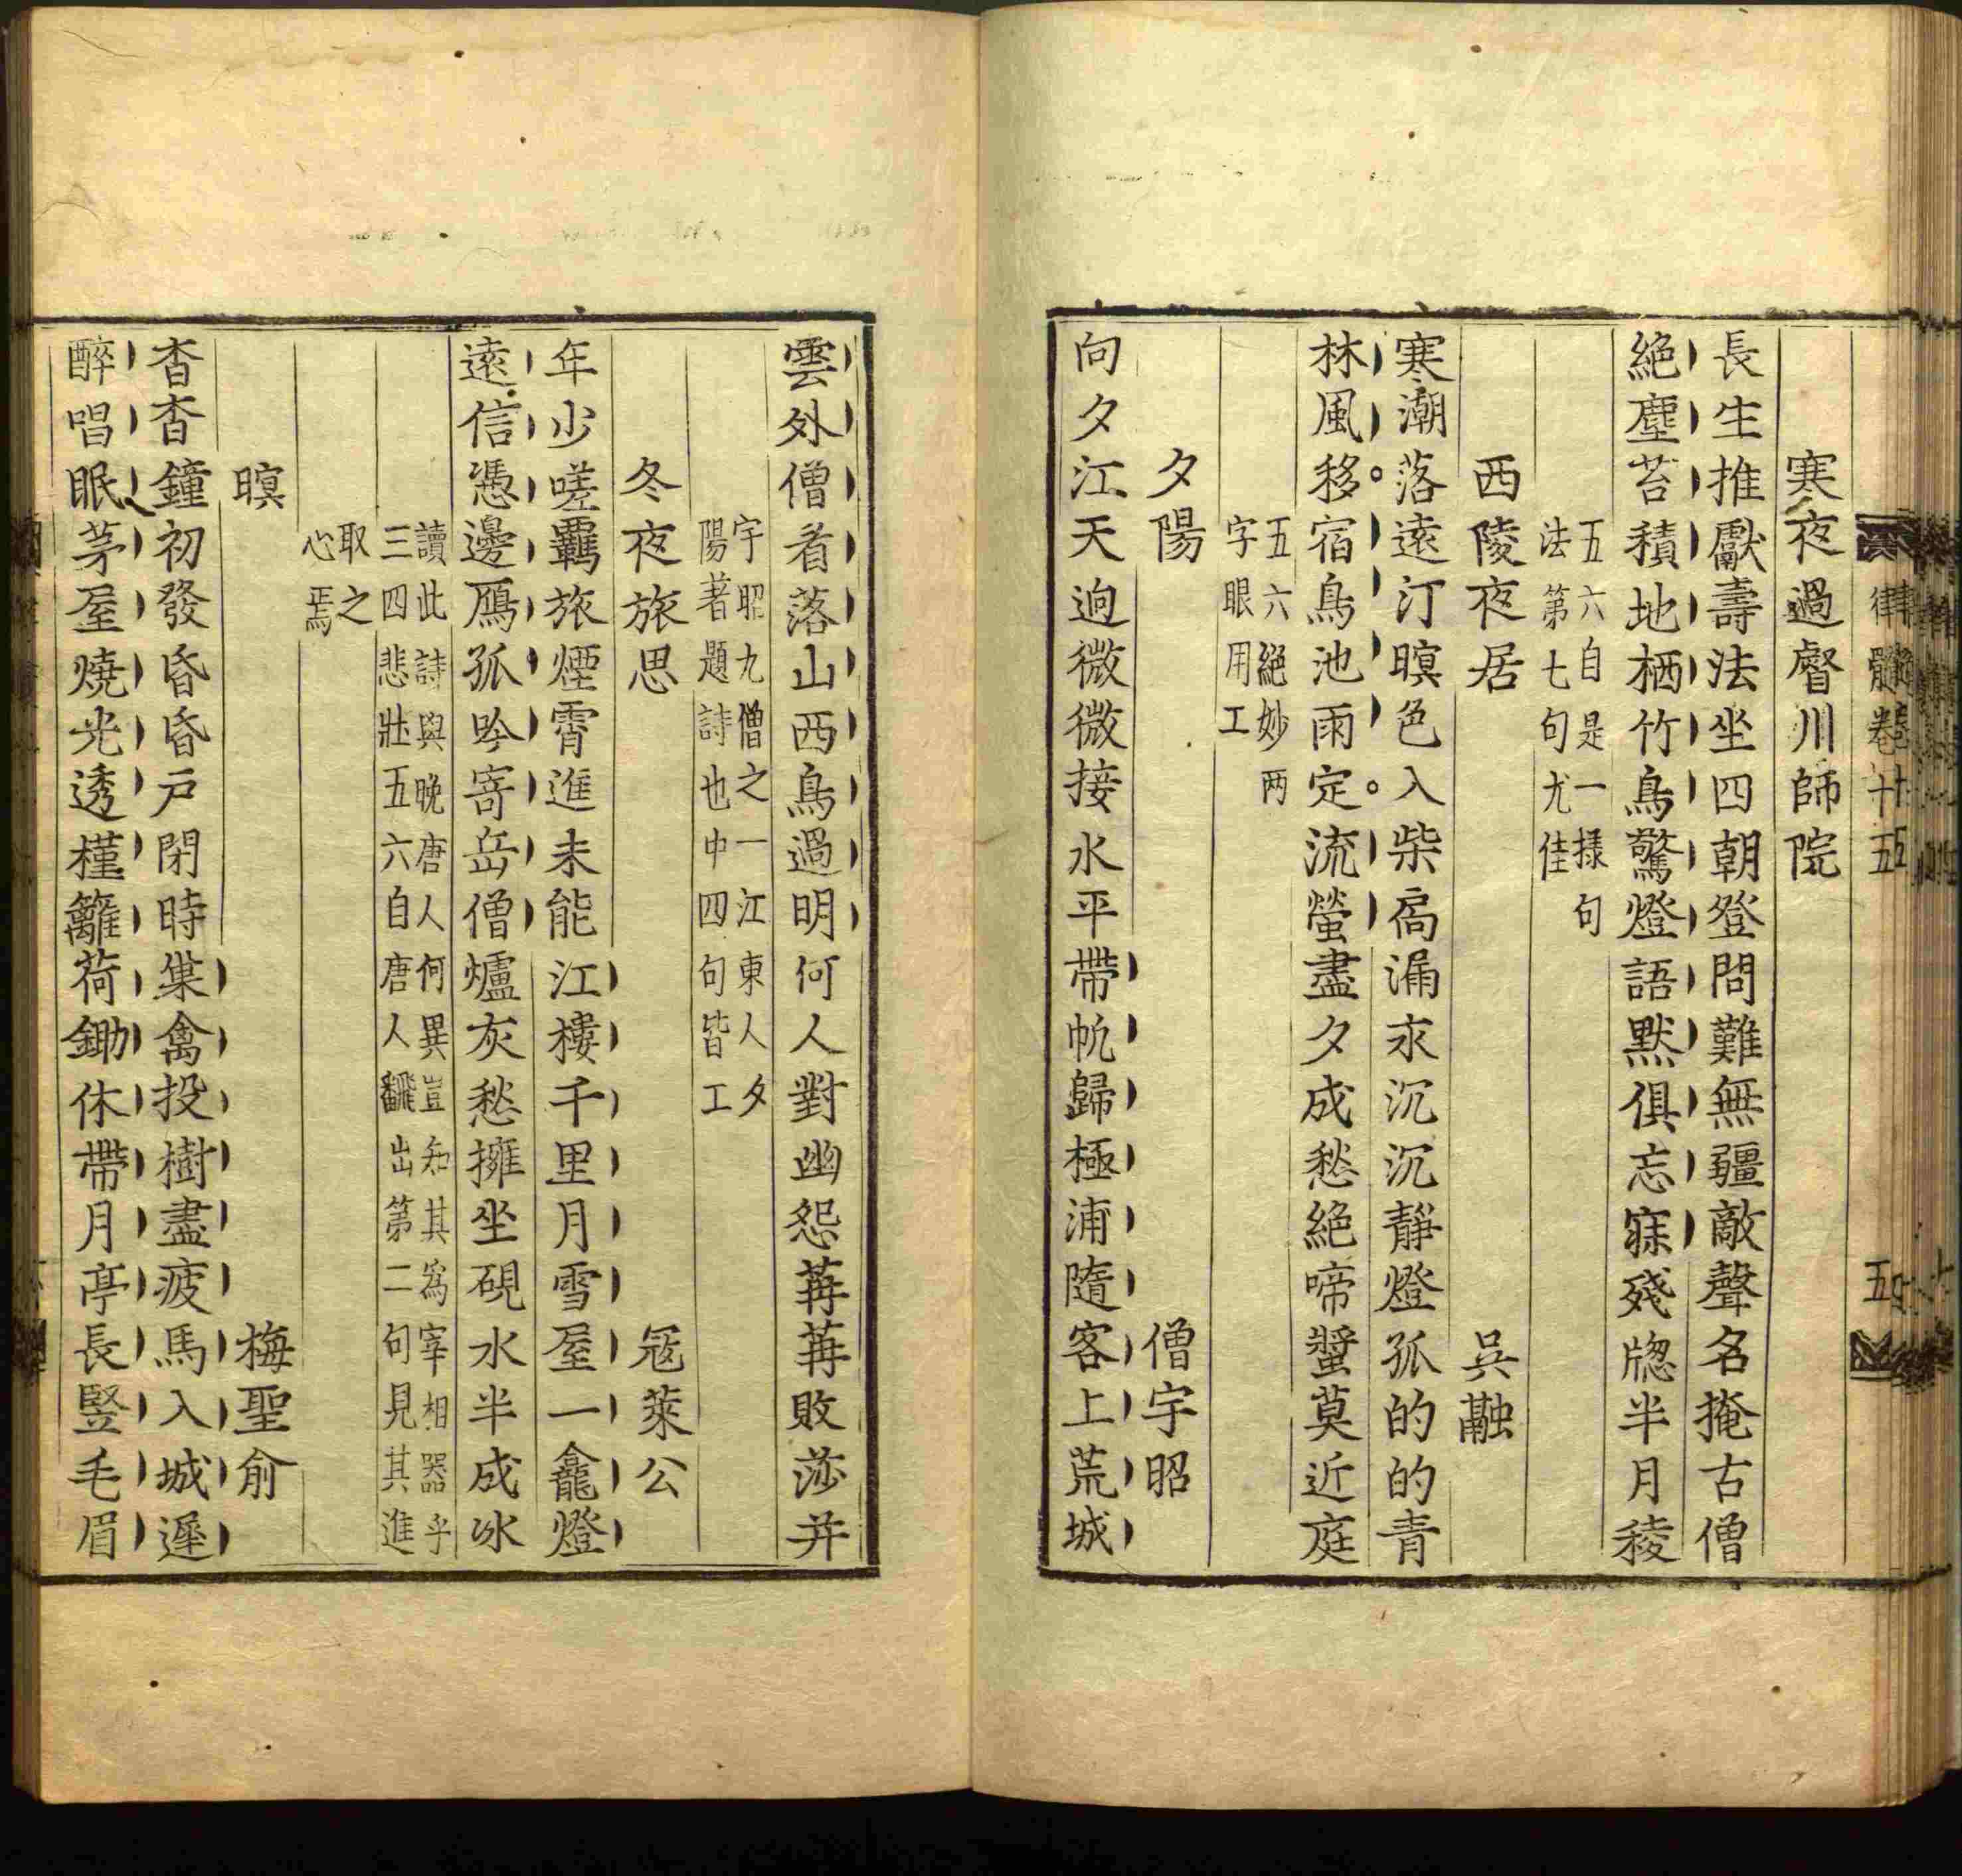 律髓卷十五
五
寒夜過睿川師院
長生推獻壽法坐四朝登問難無疆敵聲名掩古僧
絕塵苔積地栖竹鳥驚燈語默俱忘寐殘牕半月稜
五六自是一㨾句
法第七句尤佳
西陵夜居 吳融
寒潮落遠汀暝色入柴扄漏永沉沉靜燈孤的的青
林風移宿鳥池雨定流螢盡夕成愁絕啼螿莫近庭
五六絕妙两
字眼用工
夕陽 僧宇昭
向夕江天逈微微接水平帶帆歸極浦隨客上荒城
雲外僧看落山西鳥過明何人對幽怨苒苒敗莎并
宇昭九僧之一江東人夕
陽著題詩也中四句皆工
冬夜旅思 寇萊公
年少嗟羈旅煙霄進未能江樓千里月雪屋一龕燈
遠信憑邊鴈孤吟寄岳僧爐灰愁擁坐硯水半成氷
讀此詩與晚唐人何異豈知其為宰相器乎
三四悲壯五六自唐人翻出第二句見其進
取之
心焉
暝 梅聖俞
杳杳鐘初發昏昏戸閉時巢禽投樹盡疲馬入城遲
醉唱眠茅屋燒光透槿籬荷鋤休帶月亭長豎毛眉